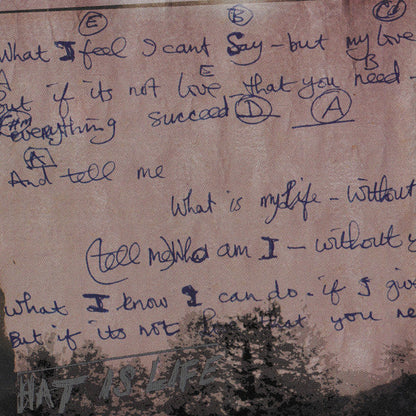 E B C#
What I feel I cant Say - but my love
A E B
but if its not love - that you need
C#m
everything succeed D A
A
And tell me
What is my Life - without
(tell me) Who am I - without y
What I know I can do. if I give
But if its not love that you ne
HAT IS LIFE